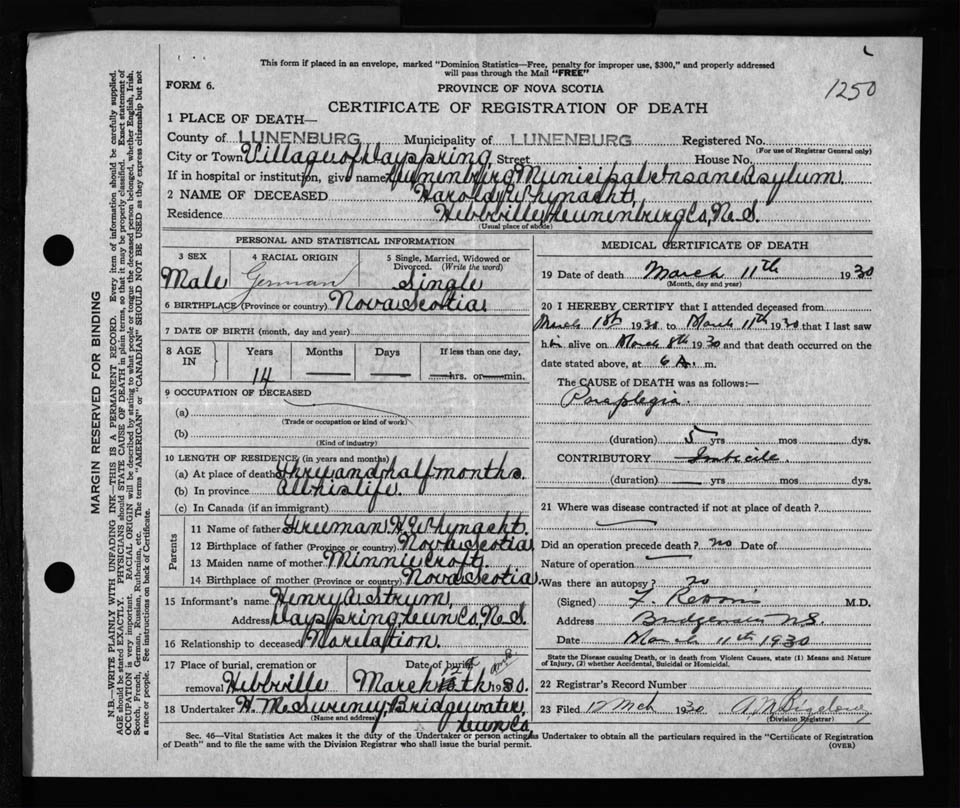 This form if placed in an envelope, marked "Dominion Statistics—Free, penalty for improper use, $300," and properly addressed
will pass through the Mail "FREE"
FORM 6.
PROVINCE OF NOVA SCOTIA
1250
CERTIFICATE OF REGISTRATION OF DEATH
1 PLACE OF DEATH—
County of LUNENBURG Municipality of LUNENBURG Registered No.
(For use of Registrar General only)
City or Town Village of Dayspring Street House No.
If in hospital or institution, give name Lunenburg Municipal Insane Asylum
2 NAME OF DECEASED Harold Whynacht.
Residence Hebbville, Lunenburg Co, N. S.
(Usual place of abode)
PERSONAL AND STATISTICAL INFORMATION
3 SEX
Male
4 RACIAL ORIGIN
German
5 Single, Married, Widowed or
Divorced. (Write the word)
Single
6 BIRTHPLACE (Province or country) Nova Scotia
7 DATE OF BIRTH (month, day and year)
8 AGE IN
Years Months Days If less than one day,
14 — — — hrs. or — min.
9 OCCUPATION OF DECEASED
(a)
(Trade or occupation or kind of work)
(b)
(Kind of industry)
10 LENGTH OF RESIDENCE (in years and months)
(a) At place of death Thre and half months.
(b) In province all his life.
(c) In Canada (if an immigrant)
Parents
11 Name of father Freeman Whynacht.
12 Birthplace of father (Province or country) Nova Scotia
13 Maiden name of mother Minnie Croft.
14 Birthplace of mother (Province or country) Nova Scotia.
15 Informant's name Henry A Strum,
Address Dayspring, Lun Co, N. S.
16 Relationship to deceased No relation.
17 Place of burial, cremation or
removal Hebbville
Date of burial
March 12th 1930.
18 Undertaker H. McSwiney, Bridgewater,
Lun Co,
(Name and address)
MEDICAL CERTIFICATE OF DEATH
19 Date of death March 11th 1930
(Month, day and year)
20 I HEREBY CERTIFY that I attended deceased from
March 1st 1930 to March 11th 1930 that I last saw
him alive on March 8th 1930 and that death occurred on the
date stated above, at 6 A. m.
The CAUSE of DEATH was as follows:—
Paraplegia.
(duration) 5 yrs mos dys.
CONTRIBUTORY Imbecile.
(duration) — yrs. mos. dys.
21 Where was disease contracted if not at place of death?
Did an operation precede death? no Date of
Nature of operation
Was there an autopsy? no
(Signed) F M.D.
Address Bridgewater N.S.
Date March 11th 1930
State the Disease causing Death, or in death from Violent Causes, state (1) Means and Nature
of Injury, (2) whether Accidental, Suicidal or Homicidal.
22 Registrar's Record Number
23 Filed 12 Mch 1930
(Division Registrar)
Sec. 46—Vital Statistics Act makes it the duty of the Undertaker or person acting as Undertaker to obtain all the particulars required in the "Certificate of Registration
of Death" and to file the same with the Division Registrar who shall issue the burial permit.
(OVER)
MARGIN RESERVED FOR BINDING
N.B.—WRITE PLAINLY WITH UNFADING INK—THIS IS A PERMANENT RECORD. Every item of information should be carefully supplied.
AGE should be stated EXACTLY. PHYSICIANS should STATE CAUSE OF DEATH in plain terms, so that it may be properly classified. Exact statement of
OCCUPATION is very important. RACIAL ORIGIN will be described by stating to what people or tongue the deceased person belonged, whether English, Irish,
Scotch, French, German, Russian, Ruthenian, etc. The terms "AMERICAN" or "CANADIAN" SHOULD NOT BE USED as they express citizenship but not
a race or people. See instructions on back of Certificate.